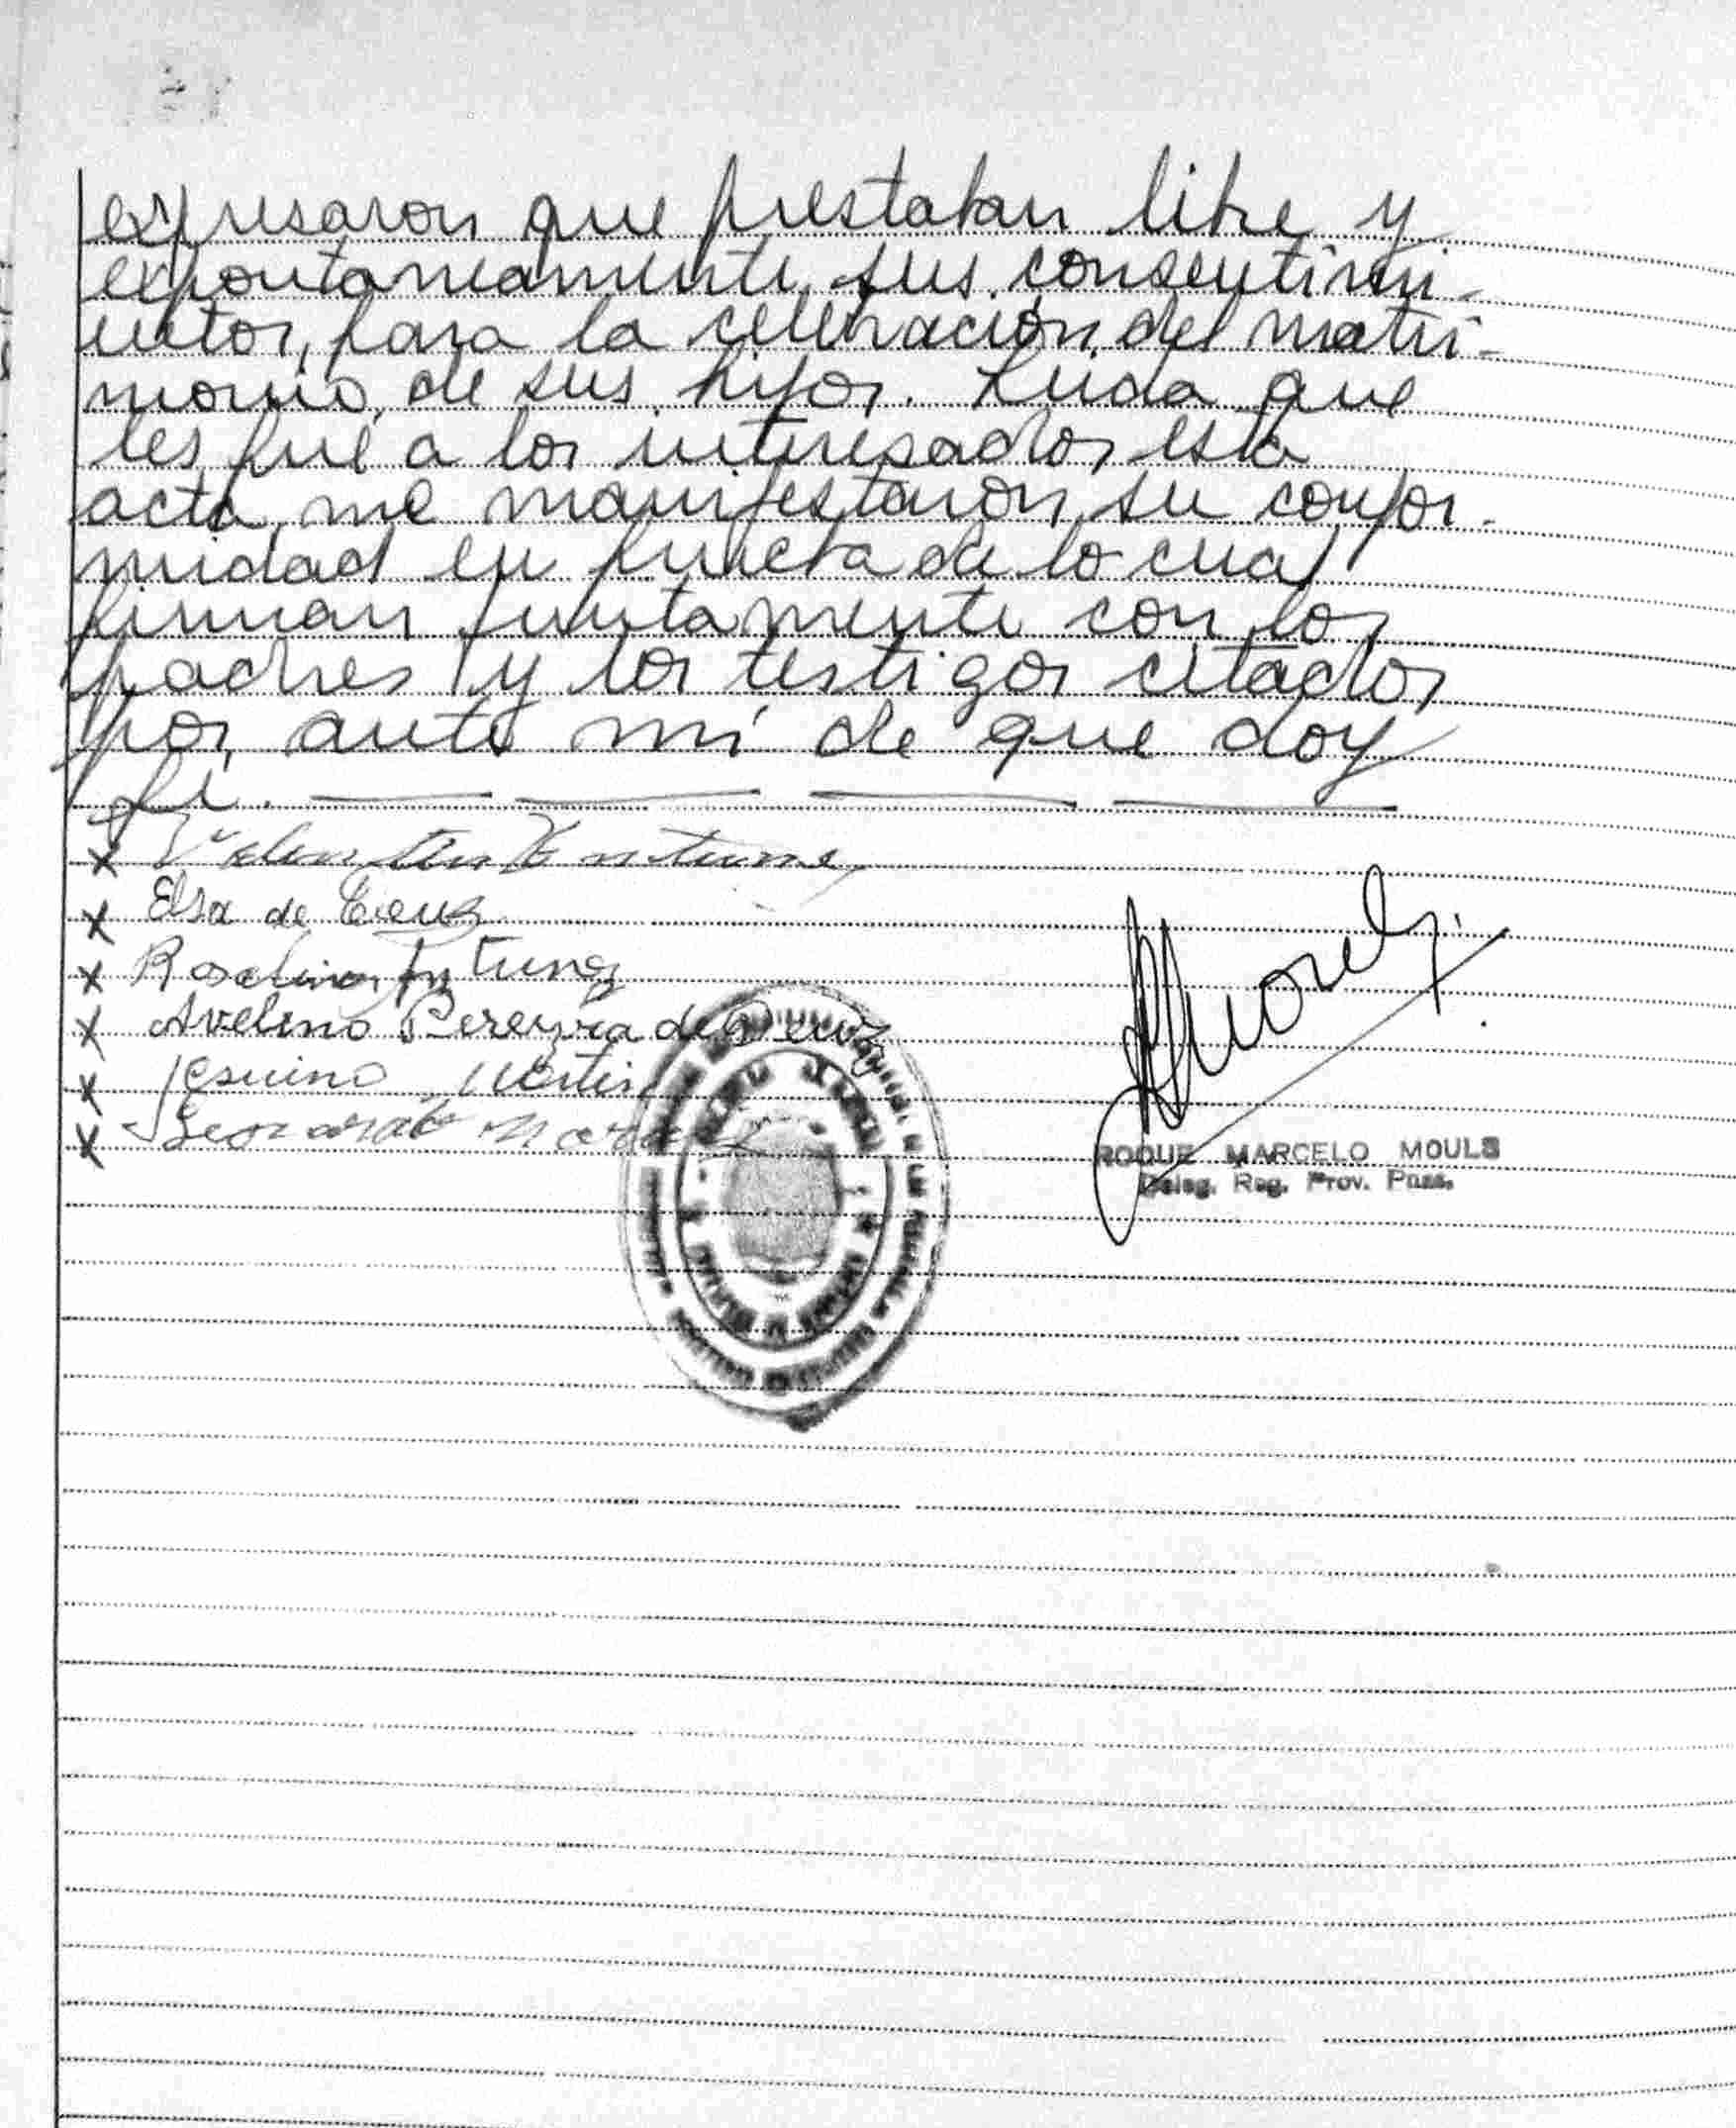 expresaron que prestaban libre y
expontaneamente sus consentimi-
entos, para la celebración del matri-
monio de sus hijos. Leida que
les fué a los interesados esta
acta, me manifestaron su confor-
midad en prueba de lo cual
firman juntamente con los
padres y los testigos citados
por ante mí de que doy
fé.
X
X Elsa de
X
X Avelino Pereyra de
X
X
ROQUE MARCELO MOULS
Deleg. Reg. Prov. Pnas.